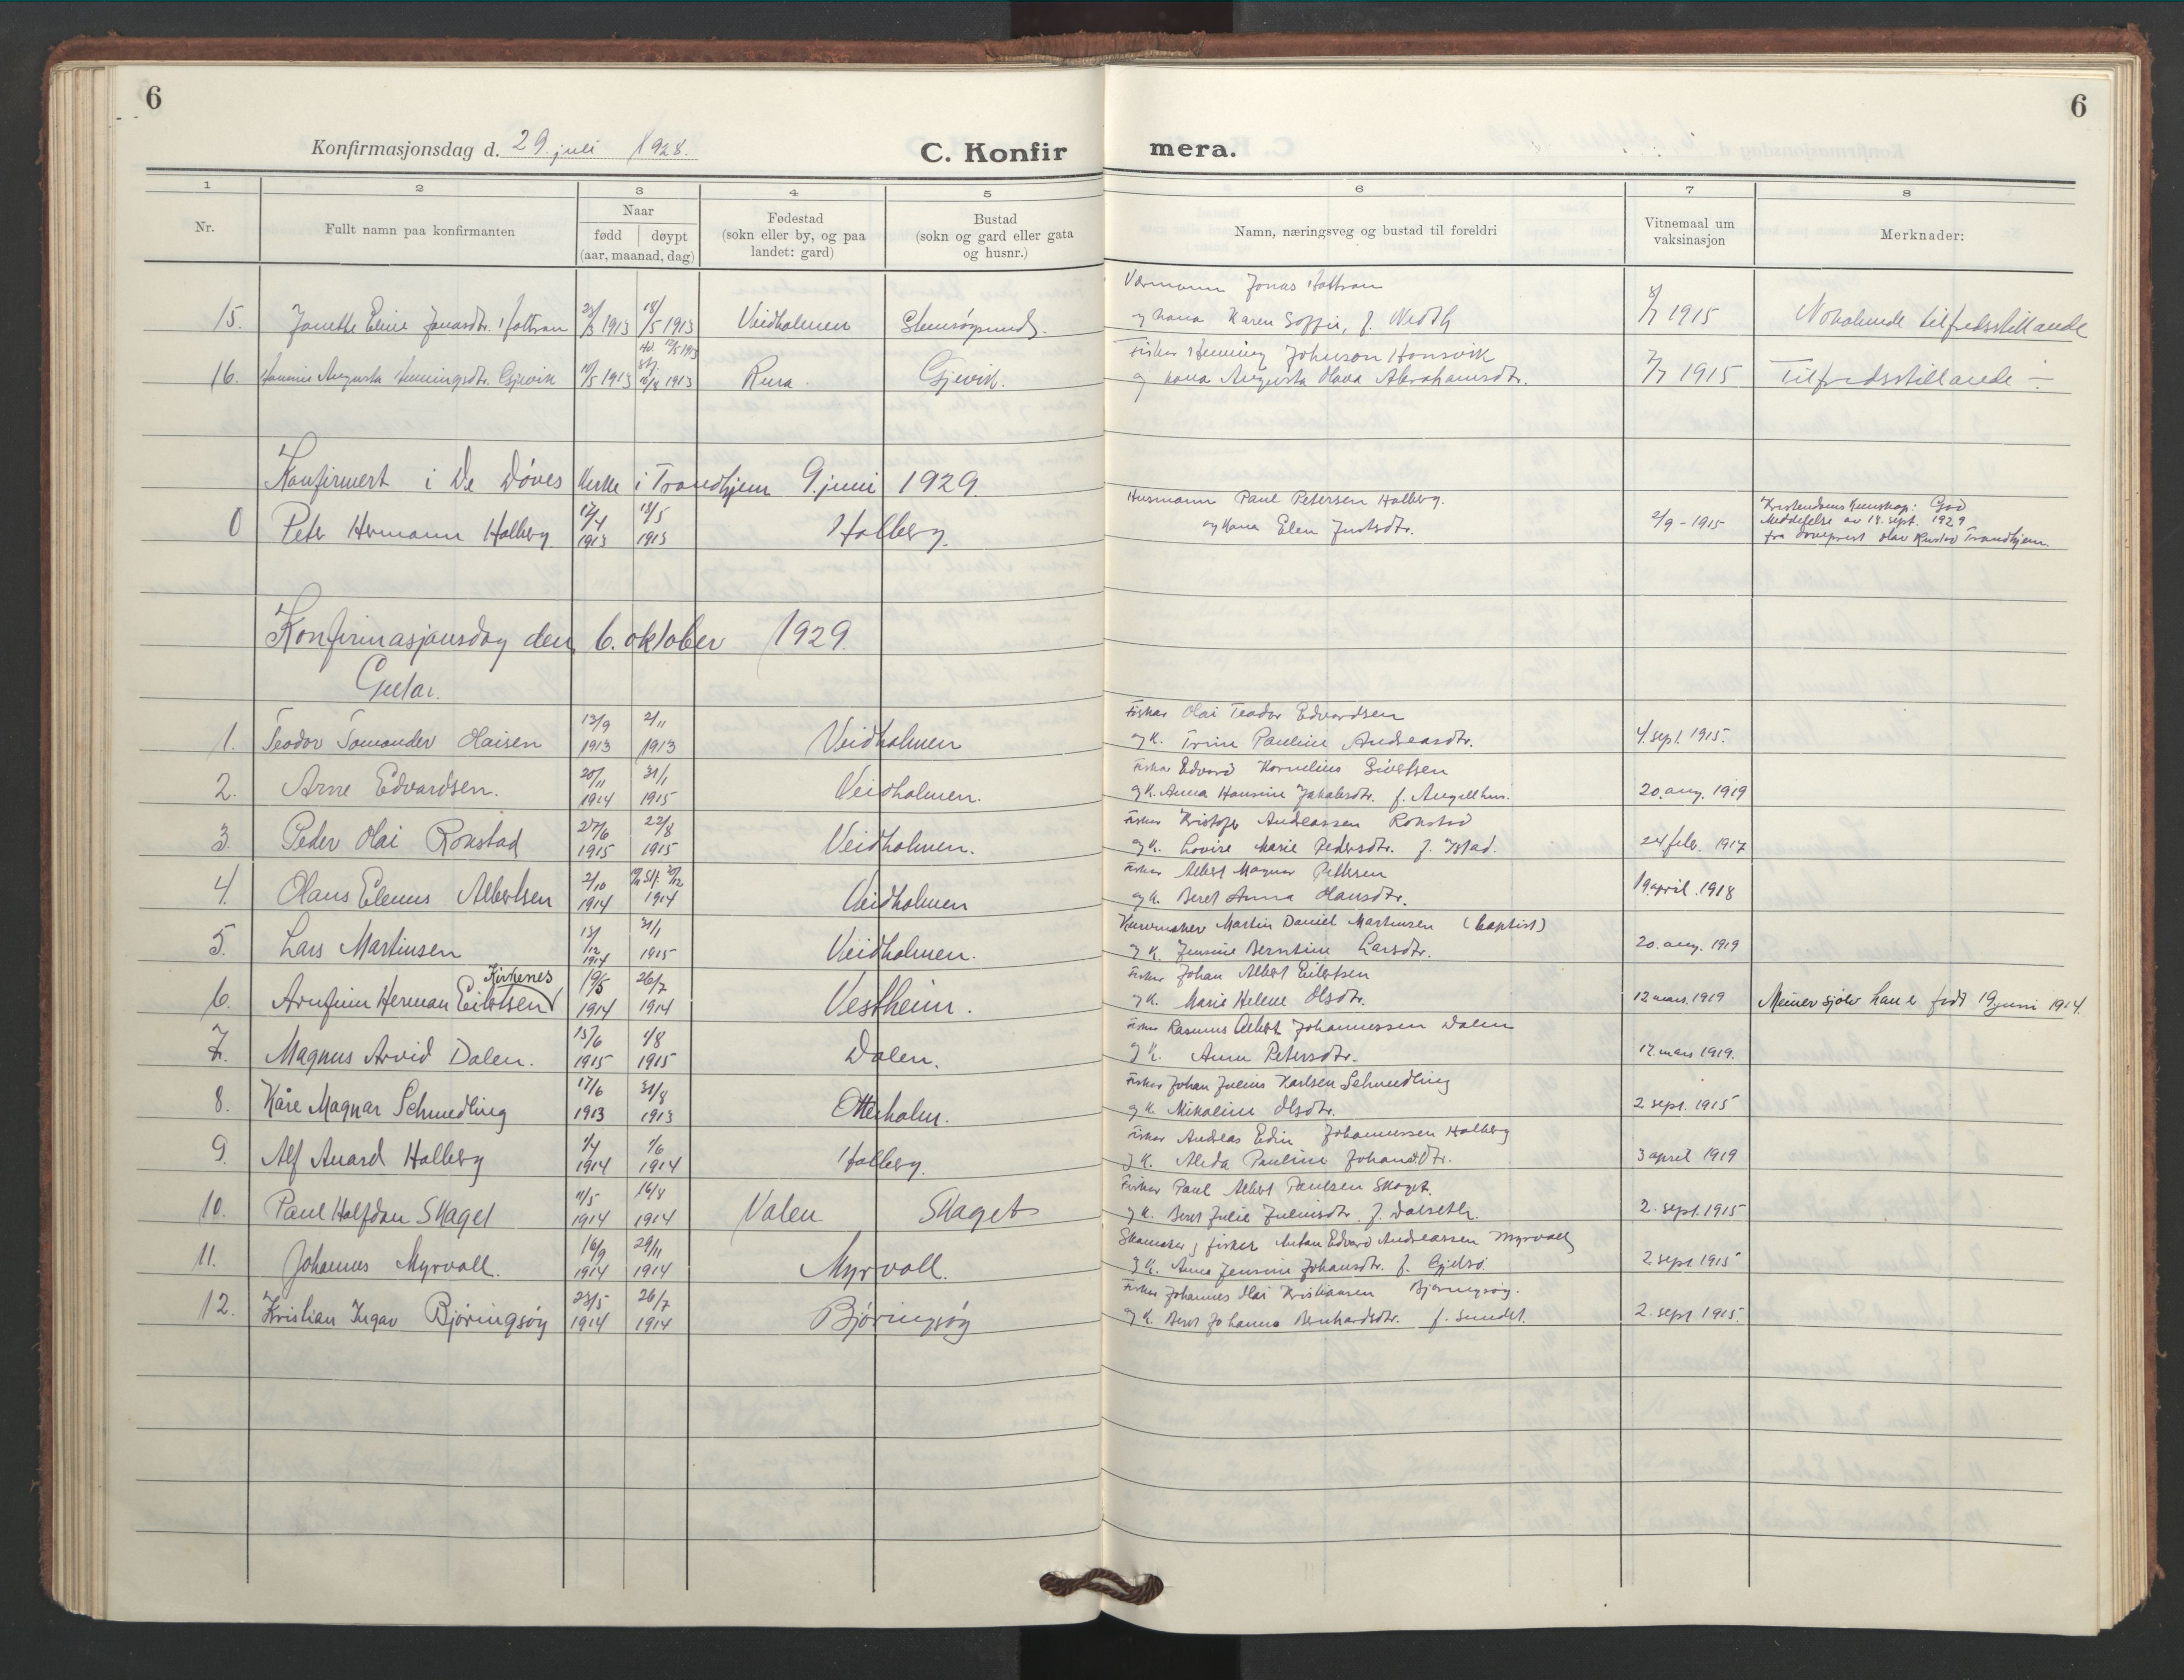 6
6
Konfirmasjonsdag d. 29. juli 1928.
C. Konfir mera.
1 2 3 4 5 6 7 8
Nr.
Fullt namn paa konfirmanten
Naar
fødd døypt
(aar, maanad, dag)
Fødestad
(sokn eller by, og paa
landet: gard)
Bustad
(sokn og gard eller gata
og husnr.)
Namn, næringsveg og bustad til foreldri
Vitnemaal um
vaksinasjon
Merknader:
Jonas Hottran
15. Janette Eline Jonasdtr. Hottran 1913 18/5 1913 Veidholmen
og kona Karen Soffie, f. 8/7 1915 Nokolunde tilfredsstillande
Fisker Henning Johnson Honsvik
16. Augusta Henningsdtr. Gjevik 10/5 1913 1913 Rura. Gjevik.
og kona Augusta Olava Abrahamsdtr. 7/7 1915 Tilfredsstillande
Konfirmert i De Døves Kirke i Trondhjem 9. juni 1929.
Husmann Paul Petersen Holberg.
0 Peter Hermann Holberg 17/4 1913 18/5 1913 Holberg.
og kona Elen Justsdtr. 2/9 - 1915
Kristendoms kunskap: God
Meddelelse av 18. sept. 1929
fra døveprest Trondhjem.
Konfirmasjonsdag den 6. oktober 1929.
Gutar.
Fisker Olai Teodor Edvardsen
1. Teodor Tomander Olaisen 13/9 1913 2/11 1913 Veidholmen
og k. Trine Pauline Andreasdtr. 4. sept. 1915.
Fisker Edvard Kornelius Sivertsen
2. Arne Edvardsen. 20/11 1914 31/1 1915 Veidholmen.
og k. Anna Hansine Jakobsdtr. f. 20. aug. 1919
Fisker Kristofer Andreassen Rokstad
3. Peder Olai Rokstad 27/6 1915 22/8 1915 Veidholmen.
og k. Lovise Marie Pedersdtr. f. Ystad. 24 febr. 1917
Fisker Albert Magnus Pettersen
4. Olaus Elenus Albertsen 2/10 1914 1914 Veidholmen
og k. Beret Anna Olausdtr. 19. april. 1918
Martin Daniel Martinsen (baptist)
5. Lars Martinsen 13/12 1914 31/1 1915 Veidholmen.
og k. Jensine Berntine Larsdtr. 20. aug. 1919
Kirkenes
Fisker Johan Albert Eilertsen
6. Arnfinn Herman Eilertsen 19/5 1914 26/7 1914 Vestheim.
og k. Marie Helene Olsdtr. 12 mars. 1919 Meiner sjølv han e født 19 juni 1914.
Fisker Rasmus Albert Johannessen Dalen
7. Magnus Arvid Dalen. 15/6 1915 1/8 1915 Dalen.
og k. Anna Petersdtr. 12 mars 1919.
Fisker Johan Julius Karlsen Schmedling
8. Kåre Magnar Schmedling 17/6 1913 31/8 1913 Otterholm.
og k. Nikoline Olsdtr. 2 sept. 1915
Fisker Andreas Edin Johannessen Holberg
9. Alf Anard Holberg 1/4 1914 1/6 1914 Holberg.
og k. Alida Pauline Johansdtr. 3 april 1919
Fisker Paul Albert Paulsen Skaget.
10. Paul Halfdan Skaget 11/5 1914 16/8 1914 Valen Skaget
og k. Beret Julie Juliusdtr. f. Dalseth. 2. sept. 1915
Skomaker og fisker Anton Edvard Andreassen Myrvoll
11. Johannes Myrvoll. 16/9 1914 29/11 1914 Myrvoll.
og k. Anna Jensine Johansdtr. f. 2 sept 1915
Fisker Johannes Olai Kristiansen Bjøringsøy.
12. Kristian Ingav Bjøringsøy 23/5 1914 26/7 1914 Bjøringsøy
og k. Beret Johanna Bernhardsdtr. f. Sundet. 2. sept 1915.